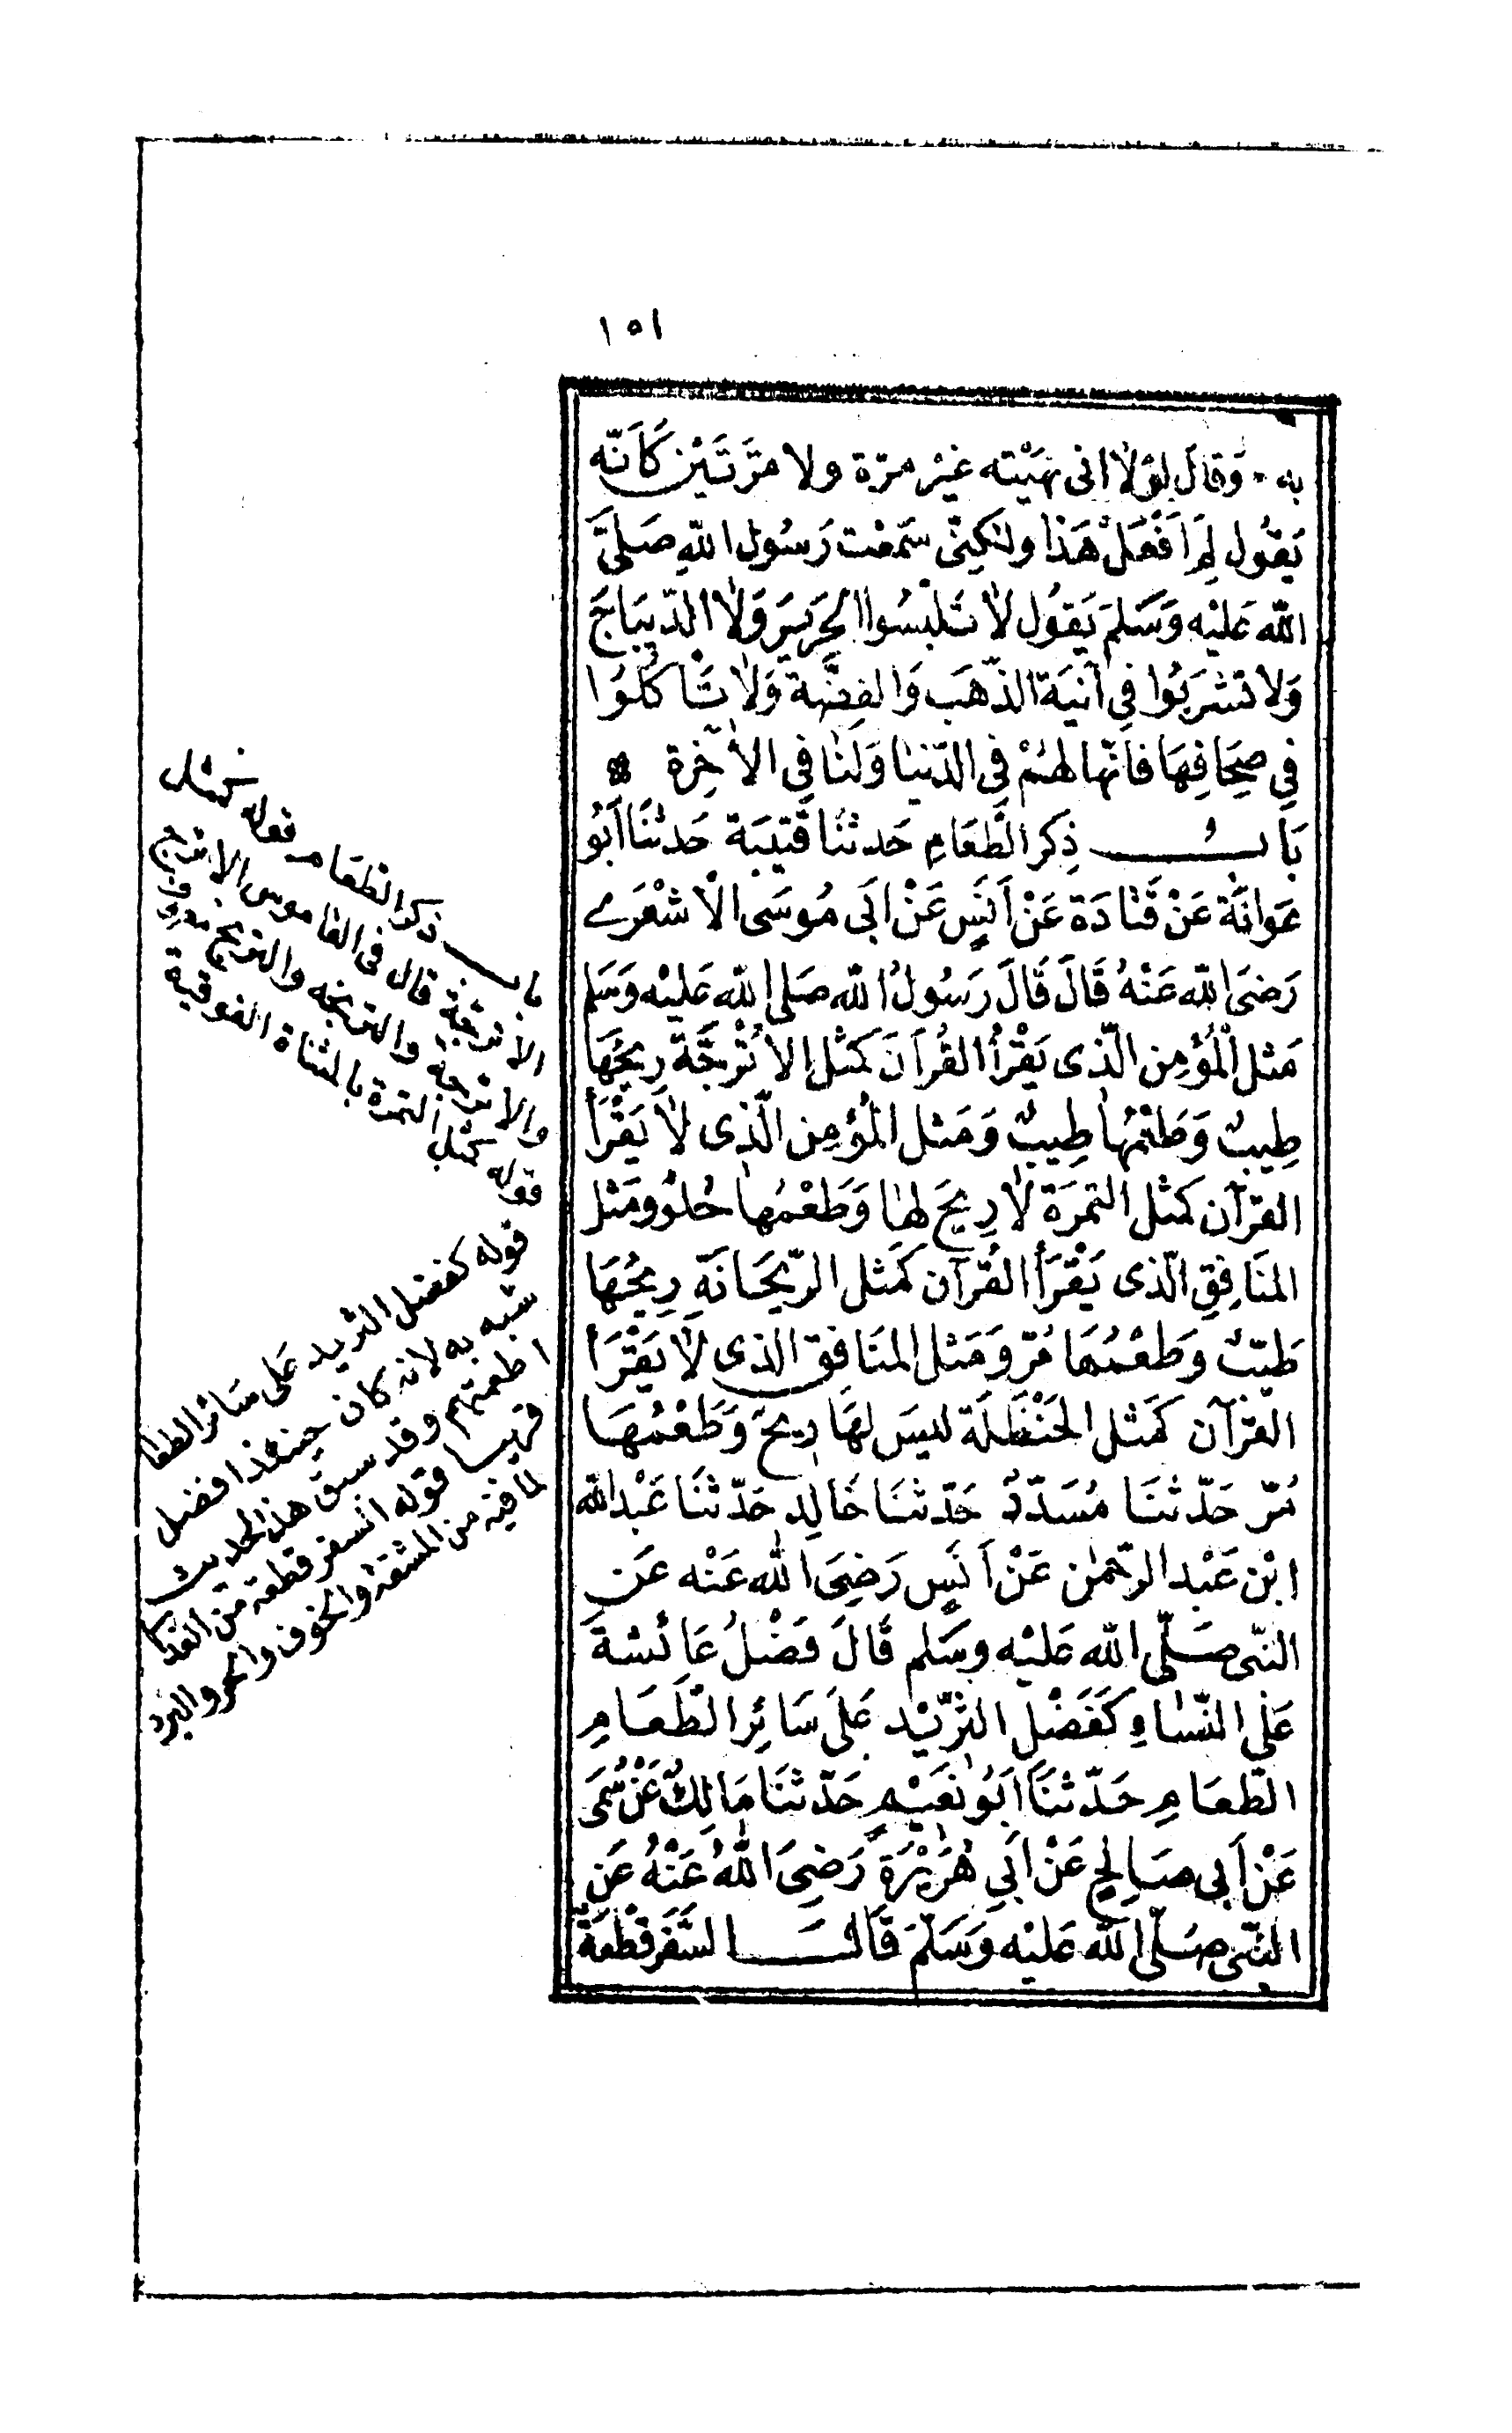 ١٥١
به وَقالَ لوْلاٰ انى نهَيْته غيْر مرّة ولا مرَّتَيْن كَاَنّه
يَقُول لِمَ اَفْعَلْ هَذا ولٰكِنّى سَمعْت رَسُول اللّه صَلىَّ
اللّه عَليْه وَسَلمَ يَقوُل لاٰ تَلْبسُوا الحَرِيرَ وَلاٰ الدّيبَاجَ
وَلا تشرَبُوا فِى آنيَة الذّهَب وَالفِضّة وَلاٰ تَأكُلوُا
فِى صِحَافِهَا فانّها لهُمْ فِى الدّنيا وَلَنا فِى الاٰخِرة
بَابُ ذِكر الطَّعَامِ حَدثنَا قتَيبَة حَدثنَا اَبُو
عَوانَة عَنْ قَتادَة عَنْ اَنَسٍ عَنْ اَبَى مُوسَى الاَشْعَرِے
رَضىَ اللّه عَنْهُ قَالَ قَالَ رَسُولُ اللّه صَلى اللّه عَليْه وَسَلم
مَثل الْمُؤمِن الّذى يَقْرأُ القُرآنَ كَمَثل الاُتْرجَّة رِيحُهَا
طِيبٌ وَطَعْمُهاٰ طِيبٌ وَمَثل المُؤمِن الّذِى لاٰ يَقْرَأ
القرْآن كَمثل التمرَة لاٰ رِيحَ لهاٰ وَطَعْمُهاٰ حُلوٌ ومَثل
المنَافِق الّذى يَقْرَأ القُرْآن كَمَثل الرّيحَانَة رِيحُهَا
طَيّبٌ وَطَعْمُهَا مُرّ وَمَثل المنَافق الذى لاٰ يَقْرَأ
القرْآن كَمَثل الحَنْظَلَة ليسَ لهَا رِيحٌ وَطَعْمُهَا
مُرّ حَدّثنَا مُسَدّدٌ حَدّثنَا خَالِد حَدّثنَا عَبْد اللّه
ابْن عَبْد الرّحمٰن عَنْ اَنَسٍ رَضِىَ اللّه عَنْه عَن
النّبى صَلّى اللّه عَليْه وسَلم قَالَ فَضْلُ عَائشةَ
عَلى النّسَاءِ كَفَضْل الثّريْد عَلىَ سَائِر الطّعَامِ
الطّعَامِ حَدّثنَا اَبُو نعَيْمٍ حَدّثنَا مَالِكٌ عَنْ سُمَى
عَنْ اَبى صَالِحٍ عَنْ اَبِى هُرَيْرَة رَضِىَ اللّٰهُ عَنْهُ عَنِ
النّبى صَلّى اللّٰه عَليْه وَسَلّمَ قَالَ السَّفَر قطْعَةٌ
باب ذكر الطعام قوله كمثل
الاترجّة قال فى القاموس الاترج
والاترجة والترنجه والترنج معروف
قوله كمثل التمرة بالمثناة الفوقية
قوله كفضل الثريد على سائر الطعا
شبه به لانه كان حينئذ افضل
اطعمتهم وقد سبق هذا الحديث
قريبا قوله السفر قطعة من العذا
لما فيه من المشقة والخوف والحر والبرد